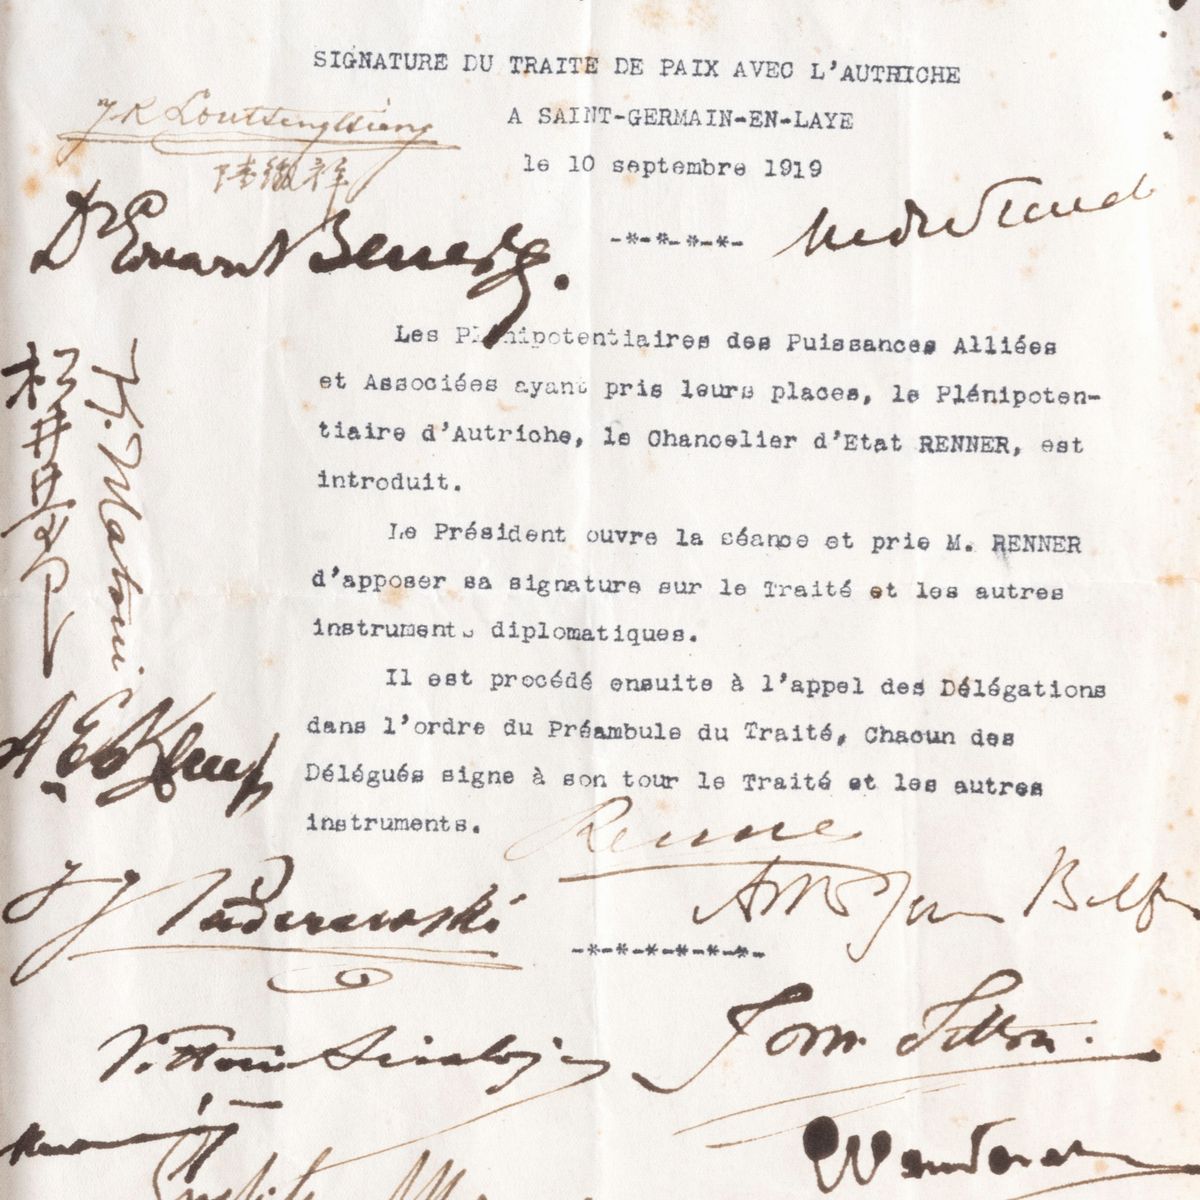 SIGNATURE DU TRAITE DE PAIX AVEC L'AUTRICHE
J.R Loutsengtsiang
A SAINT-GERMAIN-EN-LAYE
陸徵祥
le 10 septembre 1919
Dr Eduard Beneš
-*-*-*-*-
André Tardieu
Les Plénipotentiaires des Puissances Alliées
et Associées ayant pris leurs places, le Plénipoten-
tiaire d'Autriche, le Chancelier d'Etat RENNER, est
introduit.
松井慶四郎
K. Matsui
Le Président ouvre la séance et prie M. RENNER
d'apposer sa signature sur le Traité et les autres
instruments diplomatiques.
Il est procédé ensuite à l'appel des Délégations
dans l'ordre du Préambule du Traité, Chacun des
Délégués signe à son tour le Traité et les autres
instruments.
A E Kemp
Renner
J J Paderewski
Arthur James Balfour
-*-*-*-*-*-*-
Tom. Tittoni.
Vittorio Scialoja